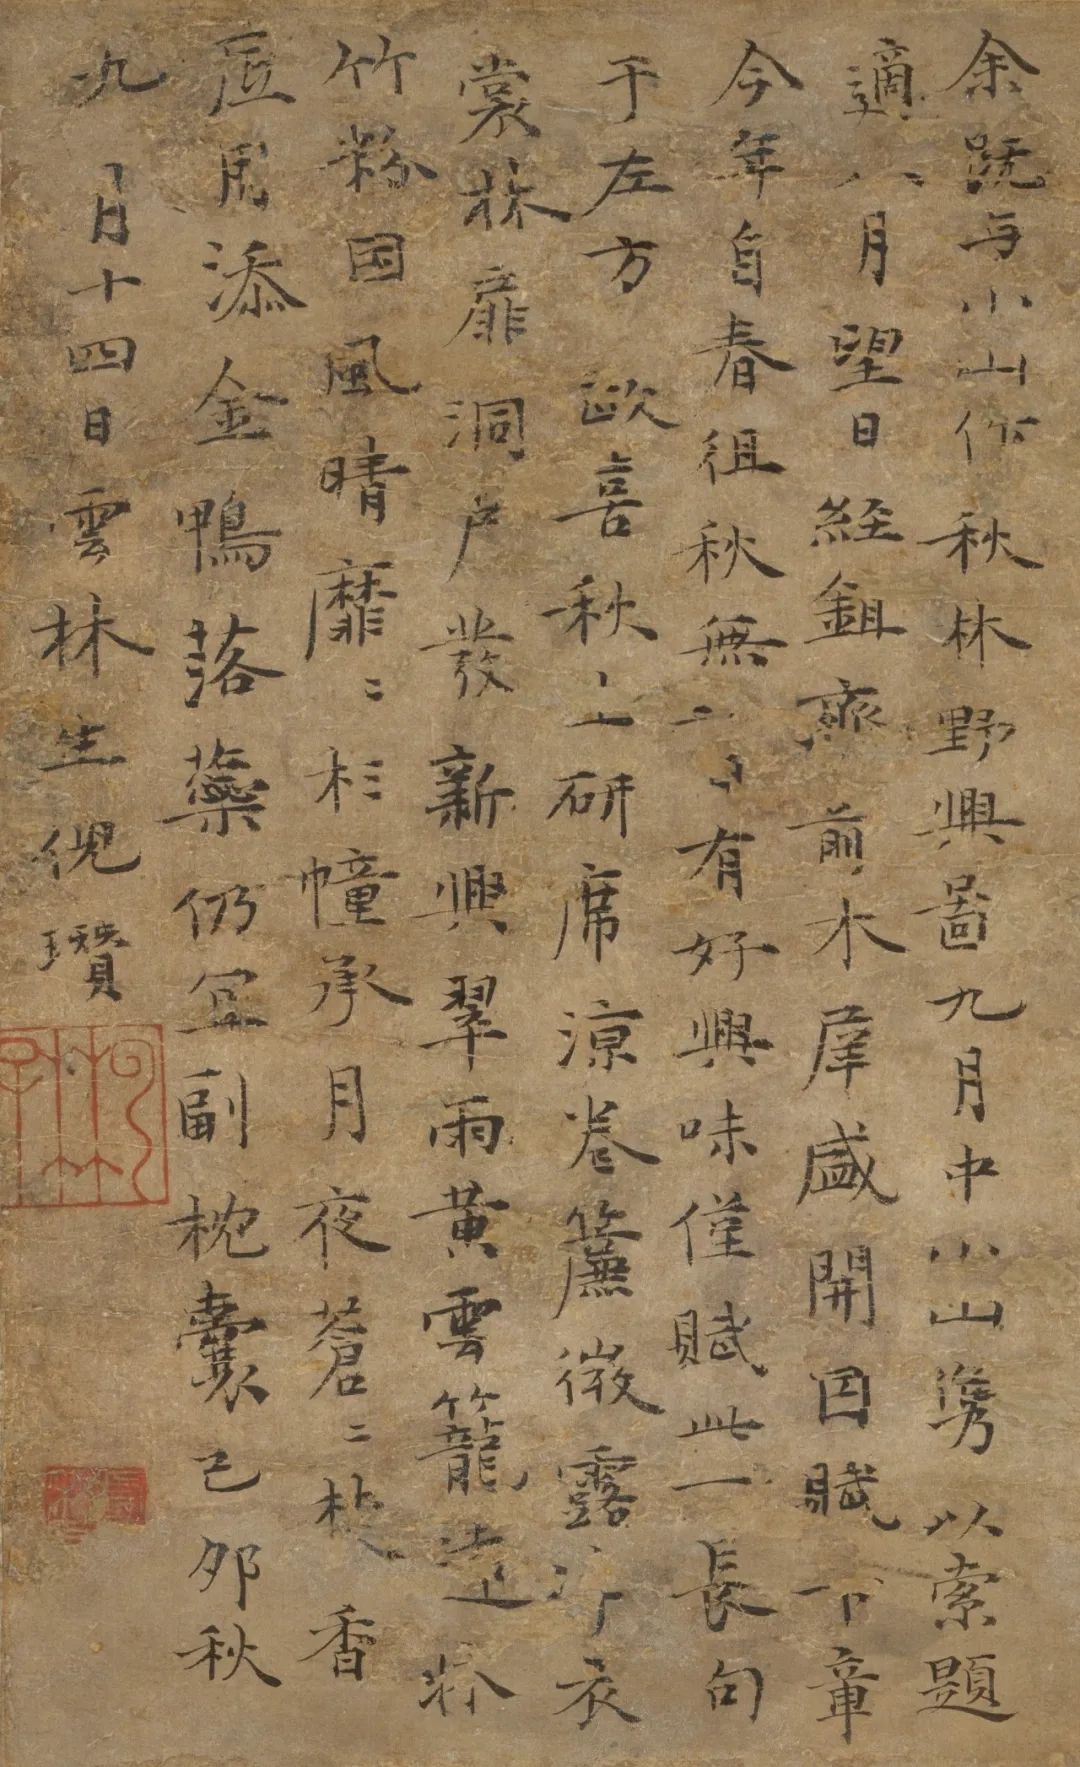 余既与小山作秋林野興圖九月中小山攜以索題
適八月望日經鉏齋前木犀盛開因賦下章
今年自春徂秋無一日有好興味僅賦此一長句
于左方政喜秋生研席涼卷簾微露衣
裳林扉洞户發新興翠雨黄雲籠遠牀
竹粉因風晴靡〻杉幢承月夜蒼〻焚香
底用添金鴨落蘂仍宜副枕囊己卯秋
九月十四日雲林生倪瓚